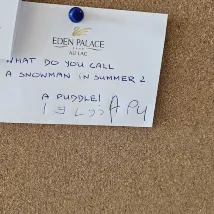 EDEN PALACE
AU LAC
WHAT DO YOU CALL
A SNOWMAN IN SUMMER?
A PUDDLE!